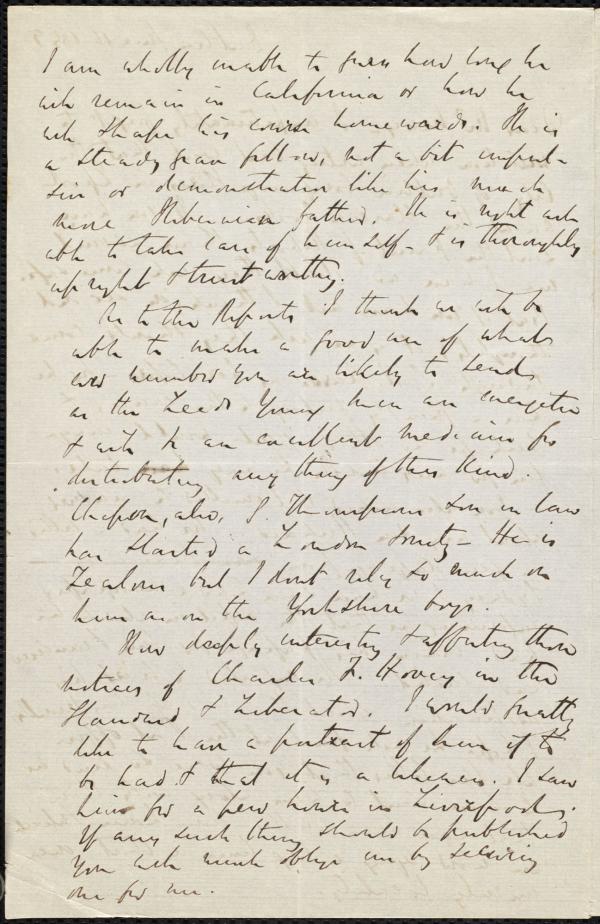 I am wholly unable to guess how long he
will remain in California or how he
will shape his course homewards. He is
a steady grave fellow, not a bit impul-
sive or demonstrative like his much
more Hibernian father. He is right well
able to take care of himself - & is thoroughly
upright & trustworthy.
As to the Reports I think we will be
able to make a good use of what
ever number you are likely to send
as the Leeds Young Men are energetic
& will be an excellent medium for
distributing any thing of this kind.
Chesson, also, G. Thompsons son in law
has started a London Society - He is
zealous but I dont rely so much on
him as on the Yorkshire boys.
How deeply interesting & affecting those
notices of Charles F. Hovey in the
Standard & Liberator. I would greatly
like to have a portrait of him if to
be had & that it is a likeness. I saw
him for a few hours in Liverpool.
If any such thing should be published
you will much oblige me by securing
one for me.